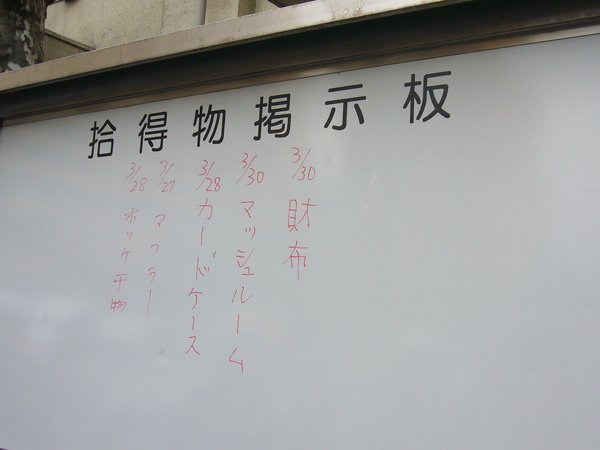 拾得物掲示板
3/30 財布
3/30 マッシュルーム
3/28 カードケース
3/27 マフラー
3/28 ホッケ干物